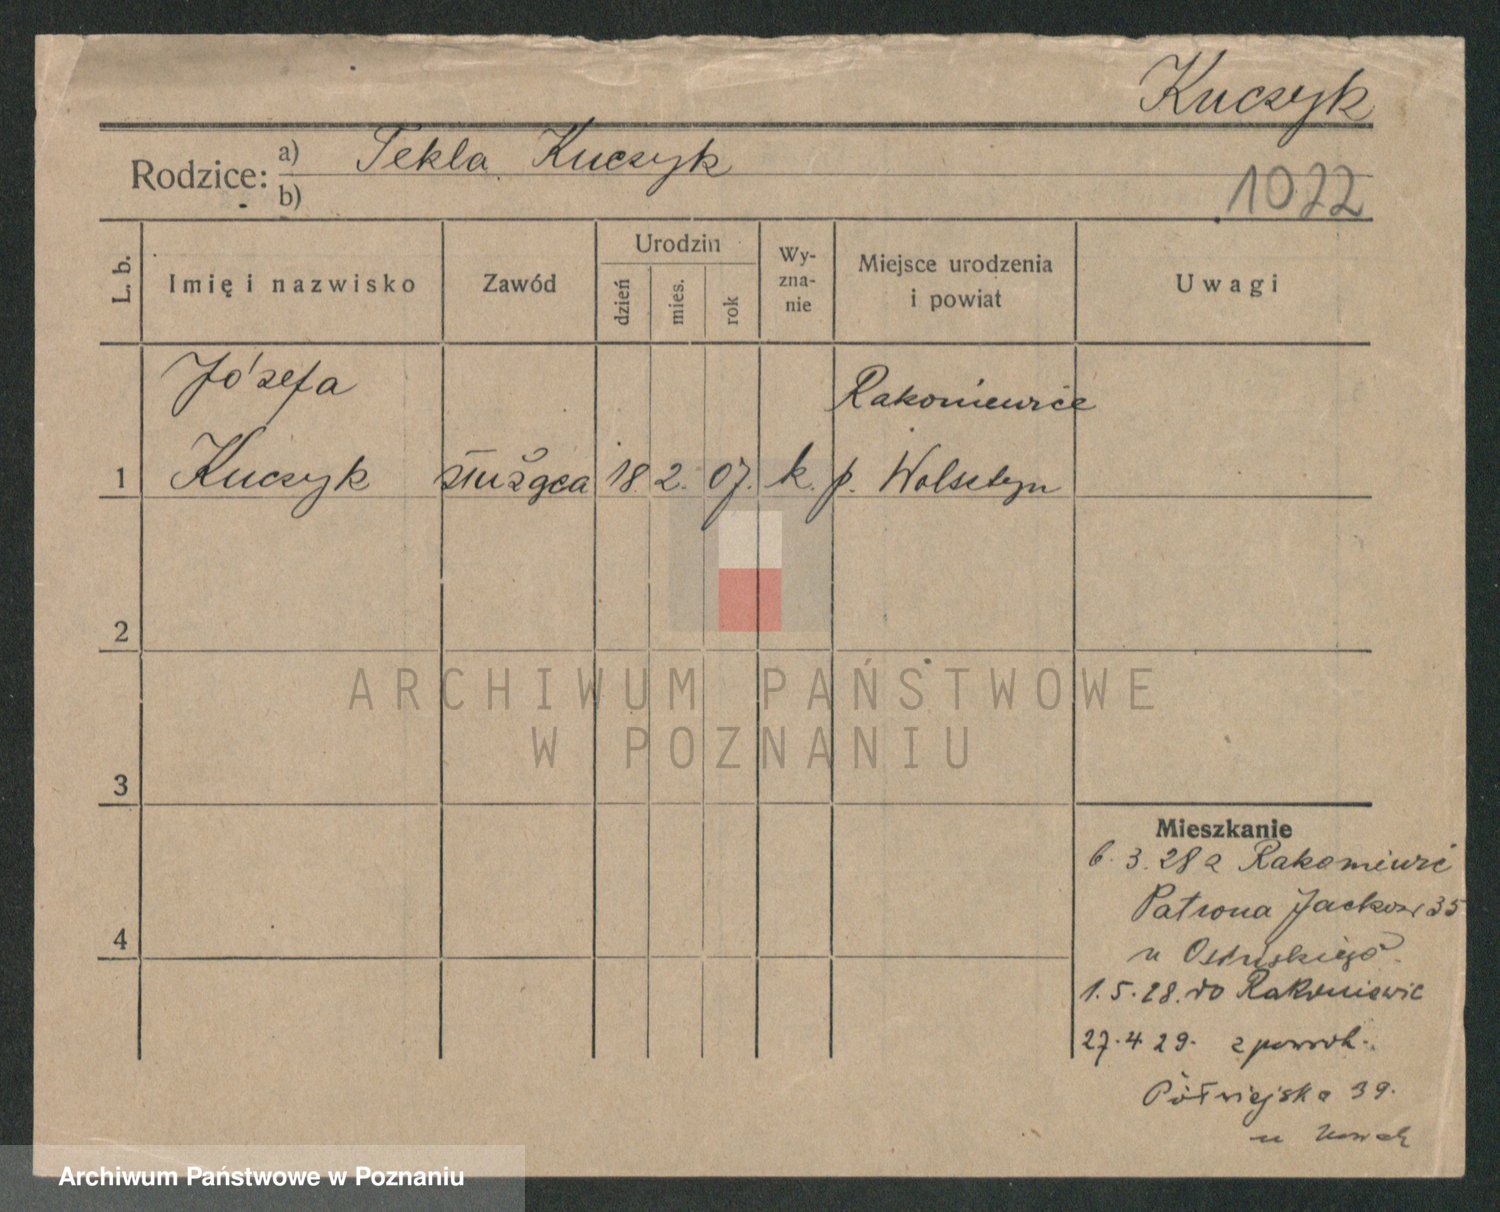 Kuczyk
Rodzice:
a) Tekla Kuczyk
b)
1022
L. b.
Imię i nazwisko
Zawód
Urodzin
dzień
mies.
rok
Wy-
zna-
nie
Miejsce urodzenia
i powiat
Uwagi
Józefa
Rakoniewice
1 Kuczyk służąca 18. 2. 07. k. p. Wolsztyn
2
ARCHIWUM PAŃSTWOWE
W POZNANIU
3
Mieszkanie
6. 3. 28 z Rakoniewic
Patrona Jackow 35
4
u
1.5.28. do Rakoniewic
27.4 29. z powrot.
Półwiejska 39.
u Nowak
Archiwum Państwowe w Poznaniu